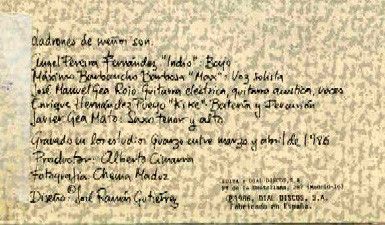 Ladrones de menor son:
Angel Pereira Fernández "Indio": Bajo
Máximo Barbancho Barbosa "Max": Voz solista
José Manuel Gea Rojo: Guitarra eléctrica, guitarra acústica, voces
Enrique Hernández Pueyo "Kike": Batería y Percusión
Javier Gea Mato: Saxo tenor y alto
Grabado en los estudios Quarzo entre marzo y abril de 1986
Productor: Alberto
Fotografía: Chema Madoz
Diseño: José Ramón Gutiérrez
DISCOS, S.A.
Pº de la Castellana, 287 (MADRID-16)
℗1986, DIAL DISCOS, S.A.
Fabricado en España.